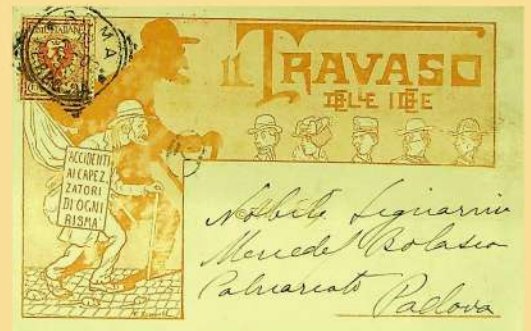 IL TRAVASO
DELLE IDEE
ACCIDENTI
AI CAPEZ
ZATORI
DI OGNI
RISMA
Nobile Signorina
Mercedes Bolasco
Padova